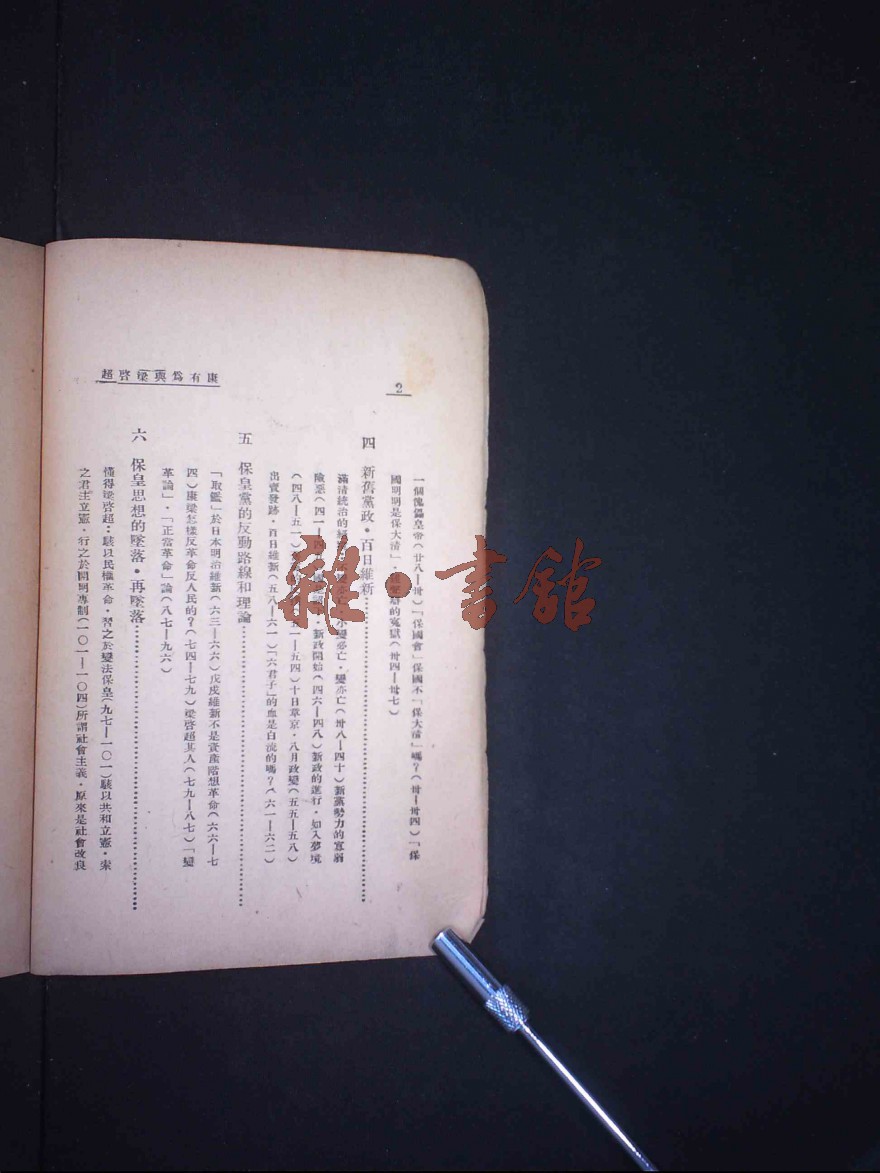 2
康有爲與梁啓超
一個傀儡皇帝(廿八—卅)「保國會」保國不「保大清」嗎?(卅—卅四)「保
國明明是保大清」 的寃獄(卅四—卅七)
四 新舊黨政・百日維新
滿清統治的 小變必亡・變亦亡(卅八—四十)新黨勢力的寡弱
險惡(四一—四 新政開始(四六—四八)新政的進行・如入夢境
(四八—五一) 一—五四)十日草京・八月政變(五五—五八)
出賣發跡・百日維新(五八—六一)「六君子」的血是白流的嗎?(六一—六二)
五 保皇黨的反動路線和理論
「取鑑」於日本明治維新(六三—六六)戊戌維新不是資產階想革命(六六—七
四)康梁怎樣反革命反人民的?(七四—七九)梁啓超其人(七九—八七)「變
革論」・「正當革命」論(八七—九六)
六 保皇思想的墜落・再墜落
懂得梁啓超:駭以民權革命・習之於變法保皇(九七—一〇一)駭以共和立憲・求
之君主立憲・行之於開明專制(一〇一—一〇四)所謂社會主義・原來是社會改良
雜・書館